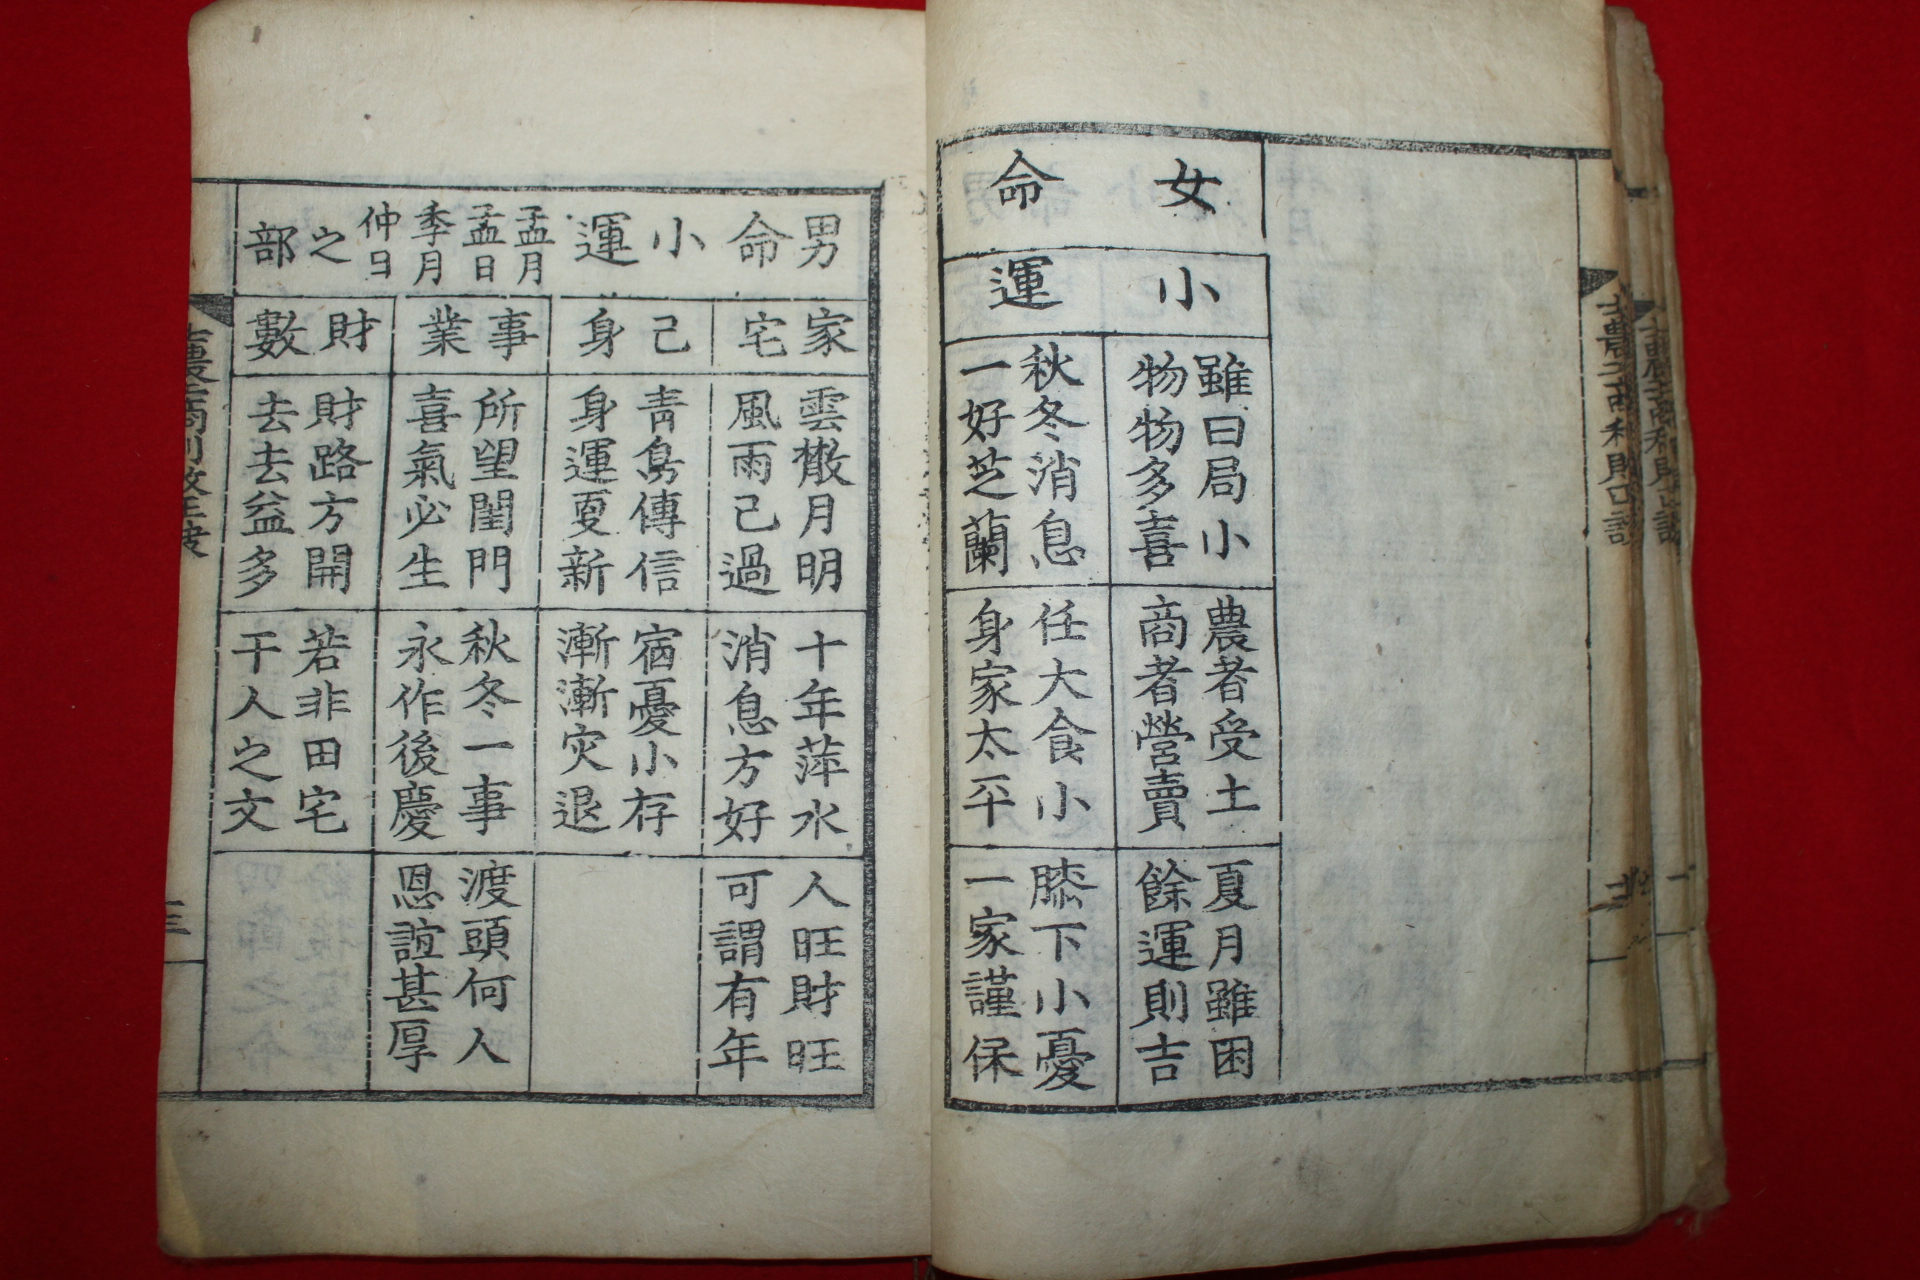 女命
小運
雖曰局小
物物多喜
秋冬消息
一好芝蘭
農者受土
商者營賣
任大食小
身家太平
夏月雖困
餘運則吉
膝下小憂
一家謹保
男命小運
孟月
孟日
季月
仲日
之部
家宅
己身
事業
財數
雲散月明
風雨已過
靑鳥傳信
身運更新
所望閨門
喜氣必生
財路方開
去去益多
十年萍水
消息方好
宿憂小存
漸漸灾退
秋冬一事
永作後慶
若非田宅
干人之文
人旺財旺
可謂有年
渡頭何人
恩誼甚厚
三